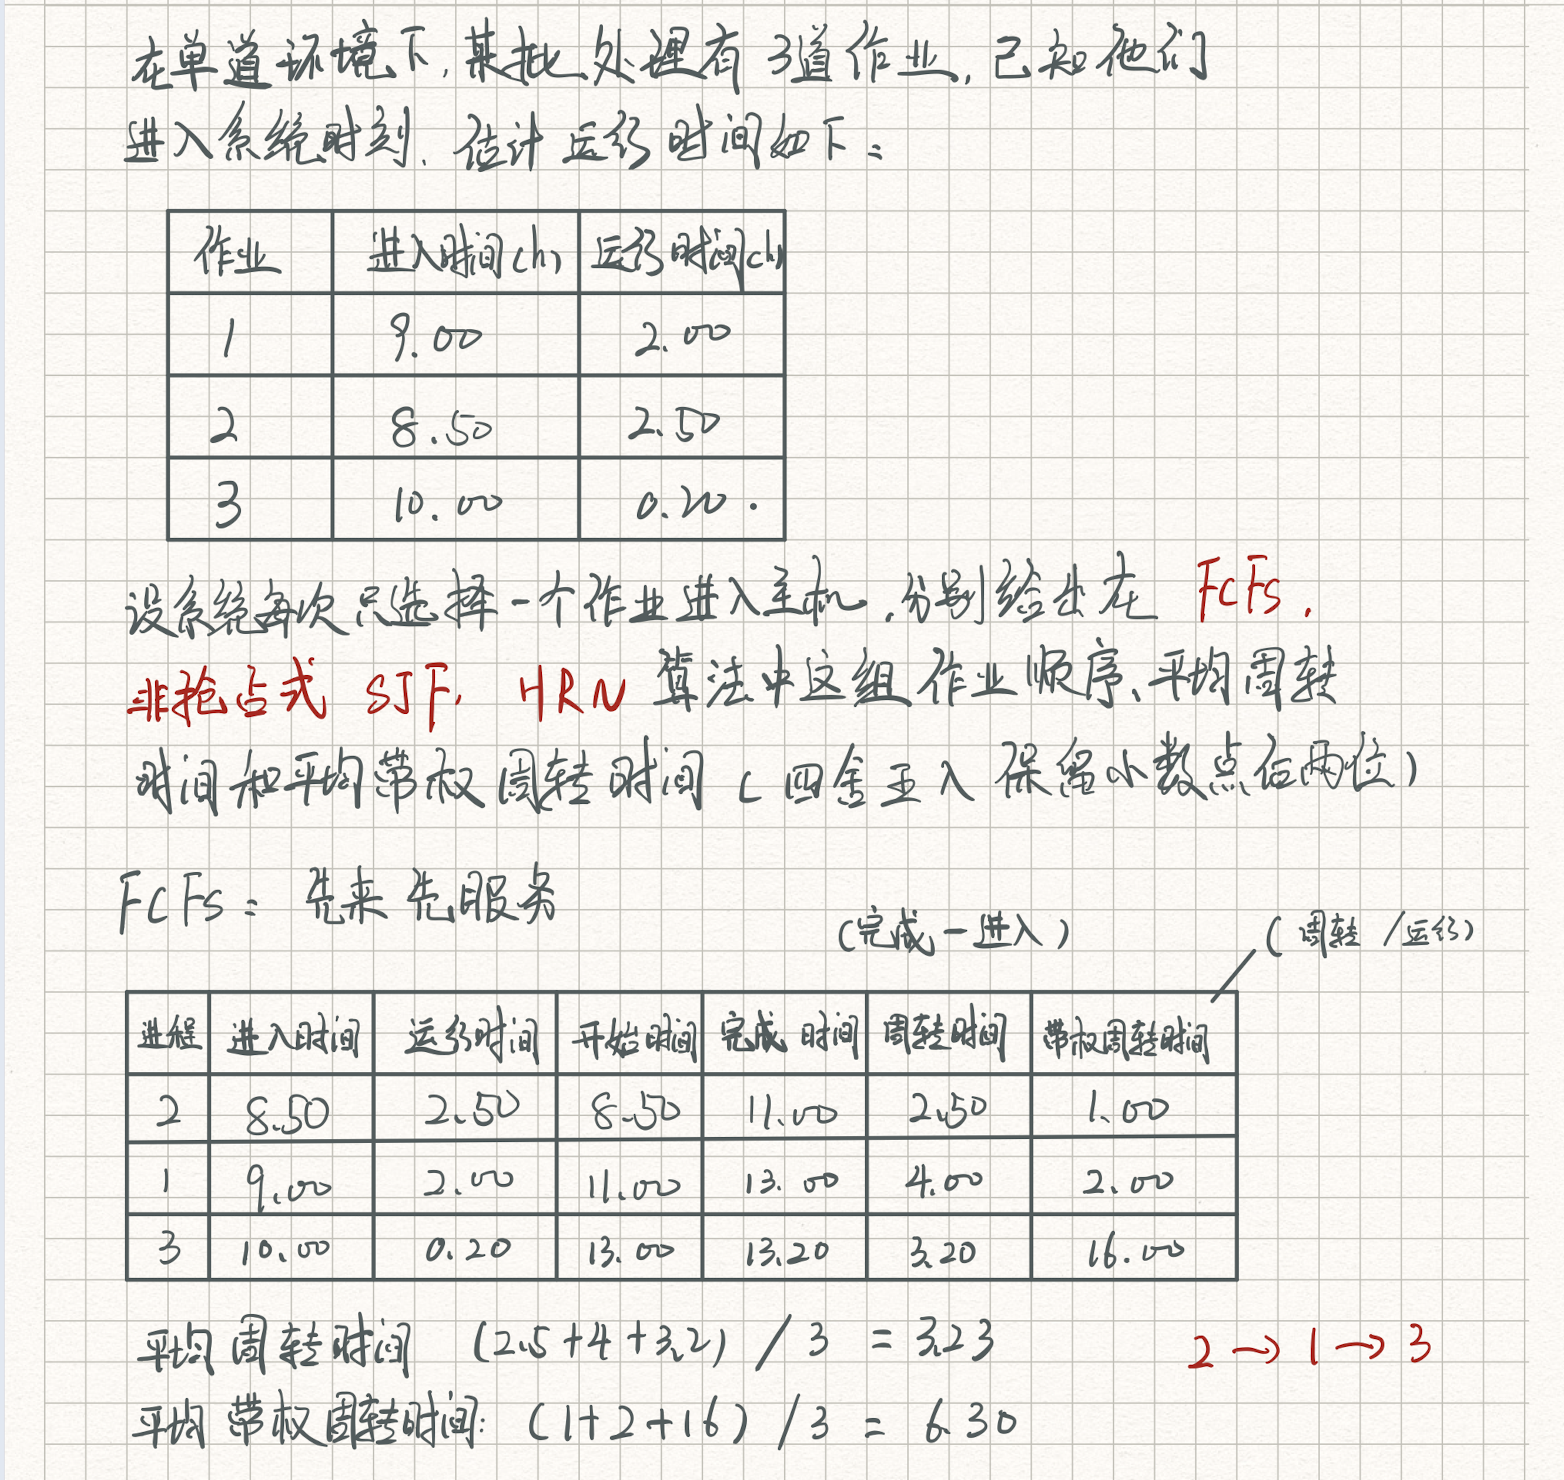 在单道环境下,某批处理有3道作业,已知他们
进入系统时刻、估计运行时间如下:
作业 进入时间(h) 运行时间(h)
1 9.00 2.00
2 8.50 2.50
3 10.00 0.20.
设系统每次只选择一个作业进入主机,分别给出在 FCFS,
非抢占式 SJF, HRN 算法中这组作业顺序、平均周转
时间和平均带权周转时间(四舍五入保留小数点后两位)
FCFS: 先来先服务
(完成-进入) (周转/运行)
进程 进入时间 运行时间 开始时间 完成时间 周转时间 带权周转时间
2 8.50 2.50 8.50 11.00 2.50 1.00
1 9.00 2.00 11.00 13.00 4.00 2.00
3 10.00 0.20 13.00 13.20 3.20 16.00
平均周转时间 (2.5+4+3.2)/3 = 3.23 2→1→3
平均带权周转时间: (1+2+16)/3 = 6.30